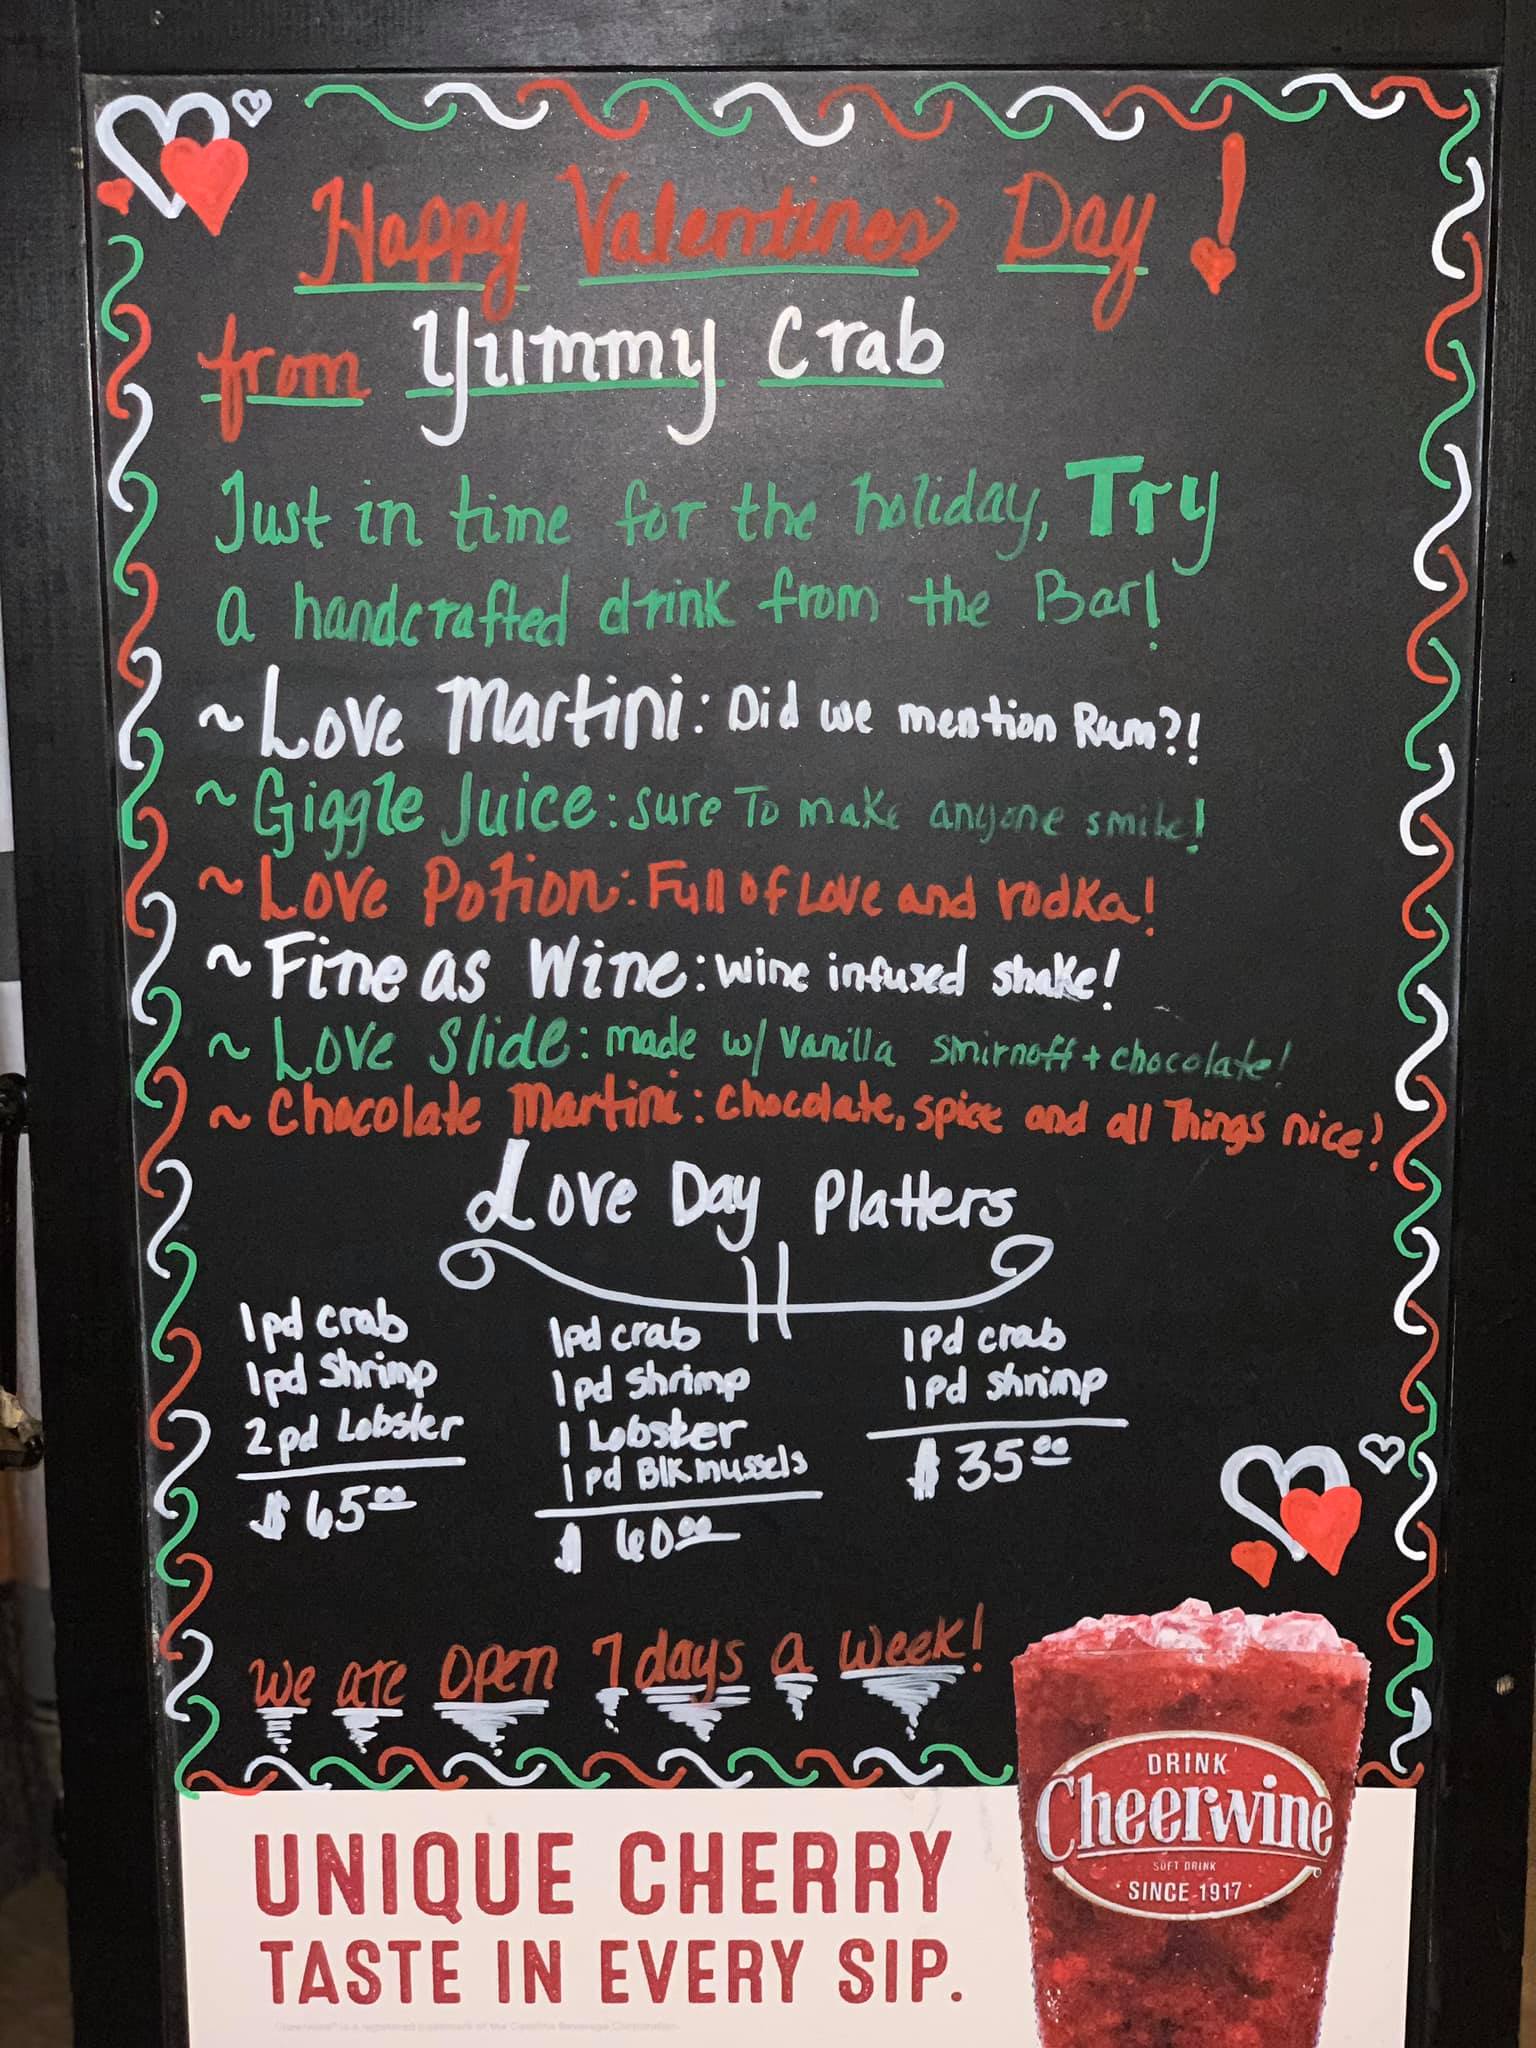 Happy Valentines Day!
from Yummy Crab
Just in time for the holiday, Try
a handcrafted drink from the Bar!
~ Love Martini: Did we mention Rum?!
~ Giggle Juice: sure To make anyone smile!
~ Love Potion: Full of Love and vodka!
~ Fine as Wine: wine infused shake!
~ Love Slide: made w/ Vanilla smirnoff + chocolate!
~ Chocolate Martini: Chocolate, spice and all Things nice!
Love Day Platters
1 pd crab
1 pd Shrimp
2 pd Lobster
$65.00
1 pd crab
1 pd Shrimp
1 Lobster
1 pd Blk mussels
$60.00
1 pd crab
1 pd shrimp
$35.00
We are open 7 days a week!
DRINK
Cheerwine
SOFT DRINK
SINCE 1917
UNIQUE CHERRY
TASTE IN EVERY SIP.
Cheerwine® is a registered trademark of the Carolina Beverage Corporation.